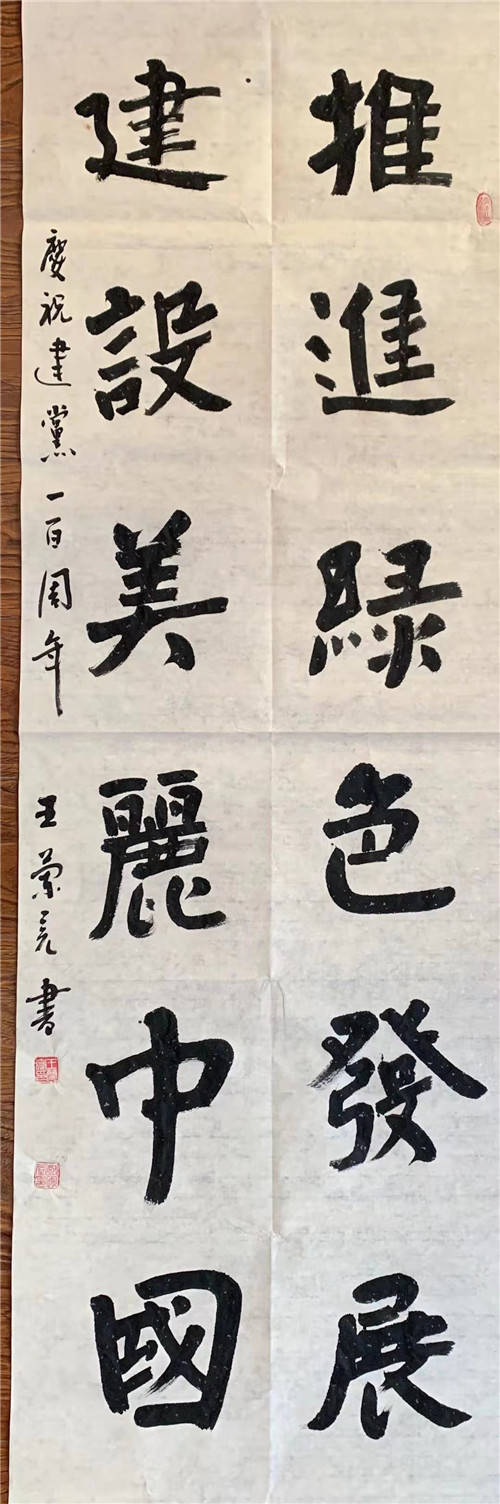 推進緑色發展
建設美麗中國
慶祝建黨一百周年
王 書